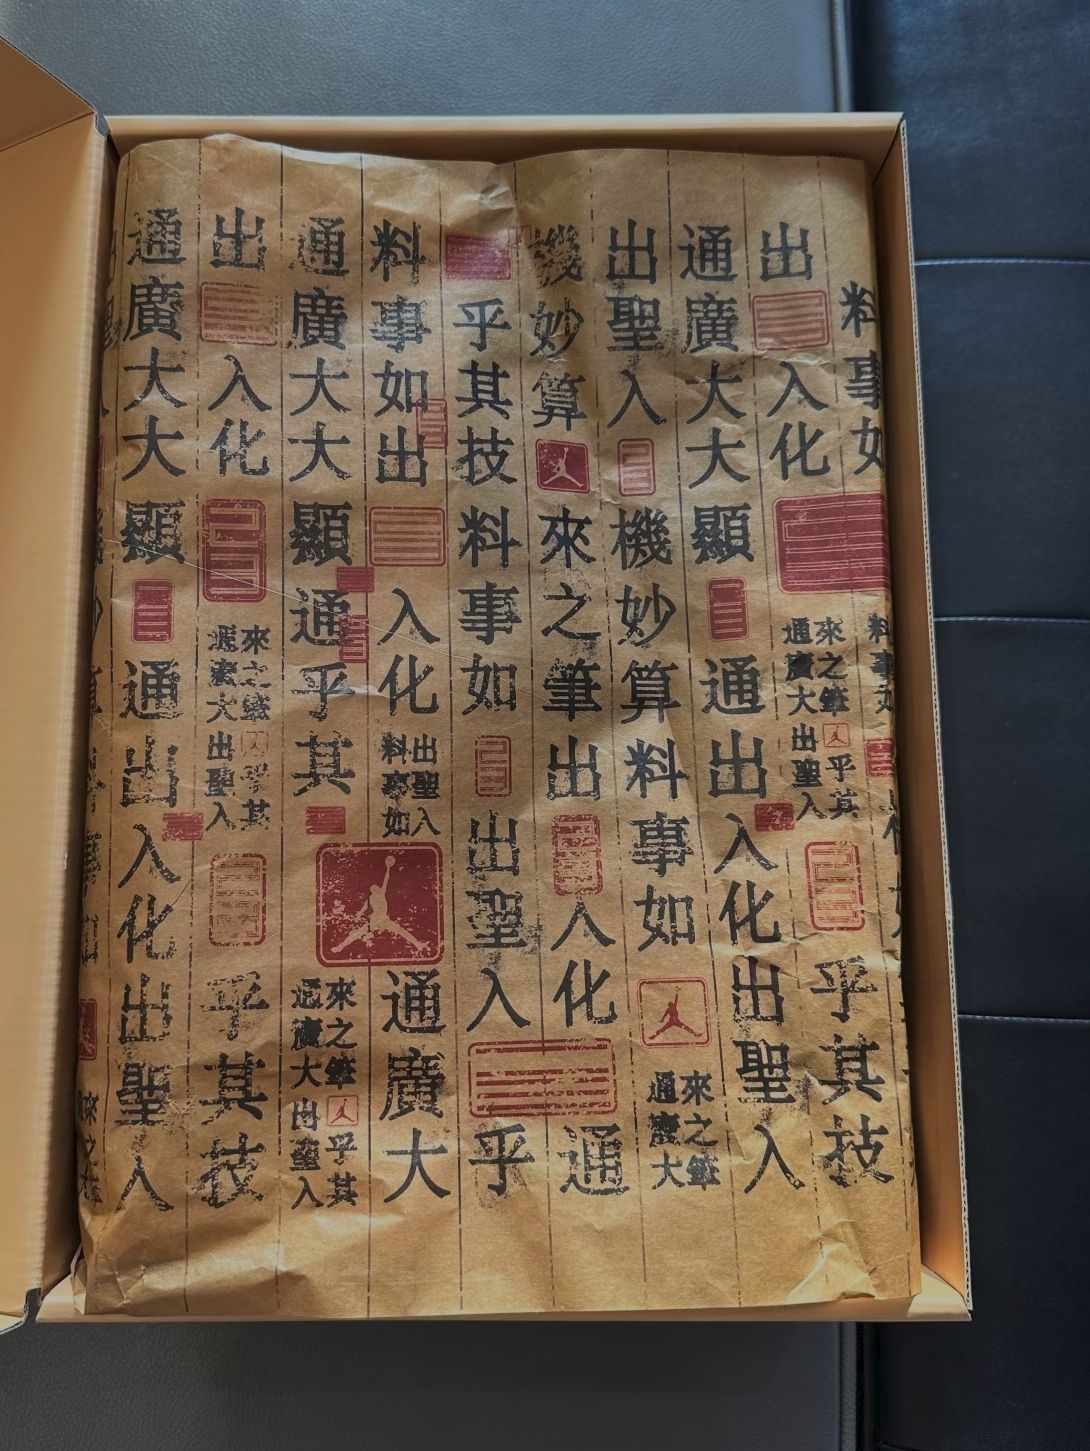 料事如
出入化
來之筆乎其
通廣大出聖入
乎其技
通廣大大顯通出入化出聖入
出聖入機妙算料事如
來之筆
通廣大
機妙算來之筆出入化通
乎其技料事如出聖入乎
料事如出入化
出聖入
料事如
通廣大
通廣大大顯通乎其
來之筆乎其
通廣大出聖入
出入化
來之筆乎其
通廣大出聖入
乎其技
通廣大大顯通出入化出聖入